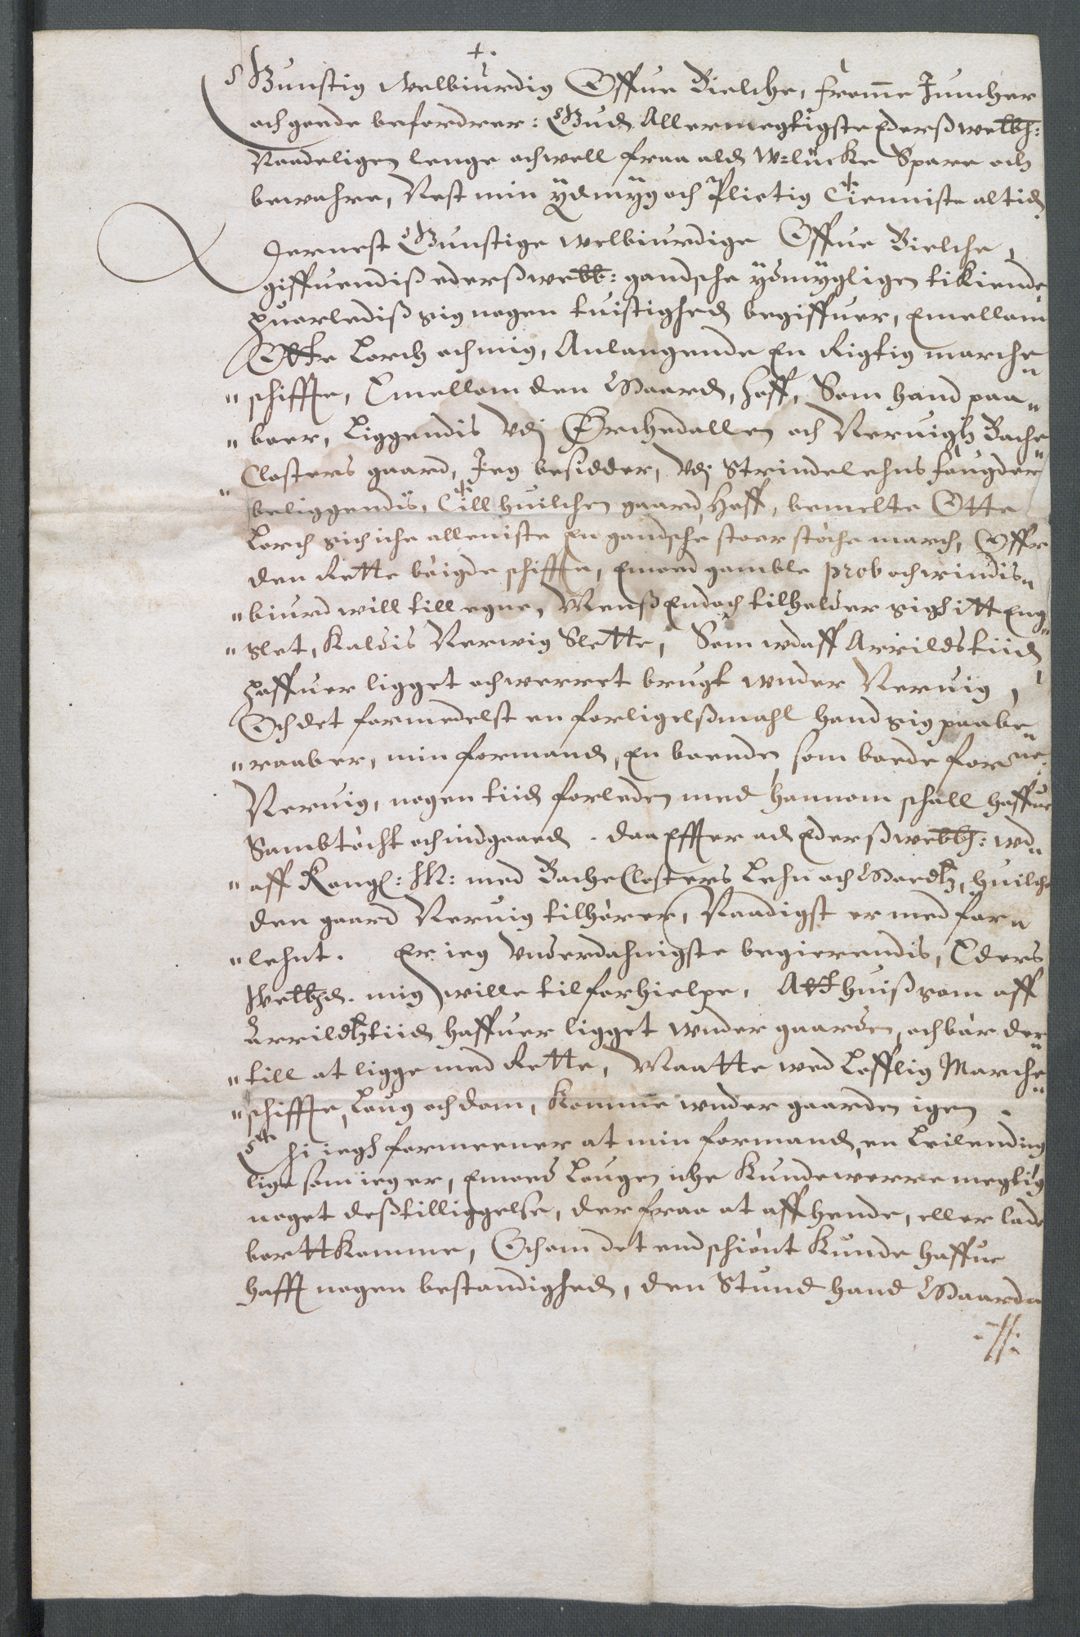 Gunstig Welbiurdig Offue Bielche, fromme Juncher
och goede befordrer: Gud Allermegtigste Ederß welb:
Naadeligen lenge och well fraa ald W-lücke Spare och
bewahre, Nest min ÿdmÿg och Plictig Tienniste altid
Dernest Gunstige welbiurdige Offue Bielche,
giffuendiß ederß welb: gandsche ÿdmÿgligen tilkiende
huorlediß sig nogen tuistighed begiffuer, Emellom
Otte Lorch och mig, Anlangende En Rigtig marche
"schiffte, Emellom den Gaard, Hoff, Som hand paa"
"boer, Liggendis Vdj Orchedallen och Neruigh Bache
Closters gaard, Jeg besidder, Vdj Strindelehns fougderi
"beliggendis, Till huilchen gaard Hoff, bemelte Otte
Lorch sich iche alleniste En gandsche stoer støche march, Offr
den Rette bøigde schiffte, Emoed gamble prob och windis"
"biurd will till egne, Menß Endoch tilholder sigh itt Eng"
"slet, Kaldis Nerwig Slette, Som wdaff Arrilds tiid
haffuer ligget och werret brugt wnder Neruig,
Och det formedelst en forligelßmahl hand sig paabe"
"raaber, min formand, En boende som boede for
Neruig, nogen tiid forleden med hannom schall haffue
Sambtøcht och indgaaed. Daa Effter ad Ederß welbh: wd"
"aff Kongl: M: med Bache Closters Lehn och Goedz, huilche
den gaard Neruig tilhører, Naadigst er med for"
"lehnt. Er ieg Vnderdahnigste begierendis, Eders
Welbhd. mig wille tilforhielpe, Att huiß som aff
Arrildz tiid haffuer ligget wnder gaarden, och bør der
"till at ligge med Rette, Maatte wed Lofflig Marche"
"schiffte, Loug och dom, komme wnder gaarden igen.
Thi iegh formeener at min formand, en Leilending
lige som ieg er, Emoed Lougen iche kunde werre megtig
noget deß tilliggelse, der fraa at affhende, eller lade
bortt komme, Och om det end schiønt kunde haffue
hafft nogen bestandighed, den Stund hand Gaarden